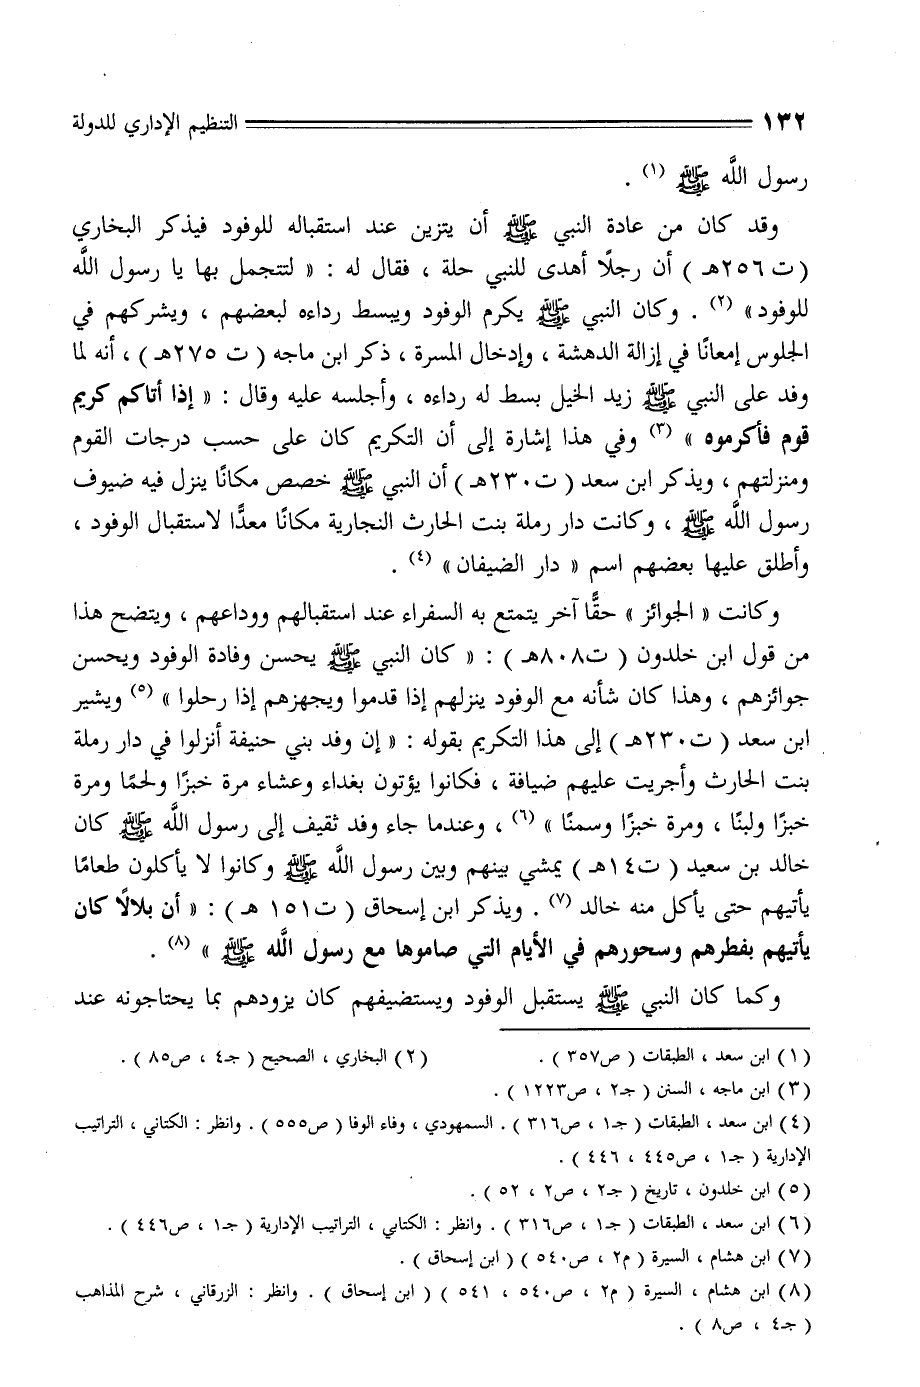 ١٣٢ التنظيم الإداري للدولة
رسول اللَّه ﷺ (١) .
وقد كان من عادة النبي ﷺ أن يتزين عند استقباله للوفود فيذكر البخاري
( ت٢٥٦هـ ) أن رجلًا أهدى للنبي حلة ، فقال له : « لتتجمل بها يا رسول اللَّه
للوفود» (٢) . وكان النبي ﷺ يكرم الوفود ويبسط رداءه لبعضهم ، ويشركهم في
الجلوس إمعانًا في إزالة الدهشة ، وإدخال المسرة ، ذكر ابن ماجه ( ت ٢٧٥هـ ) ، أنه لما
وفد على النبي ﷺ زيد الخيل بسط له رداءه ، وأجلسه عليه وقال : « إذا أتاكم كريم
قوم فأكرموه » (٣) وفي هذا إشارة إلى أن التكريم كان على حسب درجات القوم
ومنزلتهم ، ويذكر ابن سعد ( ت٢٣٠هـ ) أن النبي ﷺ خصص مكانًا ينزل فيه ضيوف
رسول اللَّه ﷺ ، وكانت دار رملة بنت الحارث النجارية مكانًا معدًّا لاستقبال الوفود ،
وأطلق عليها بعضهم اسم « دار الضيفان» (٤) .
وكانت « الجوائز » حقًّا آخر يتمتع به السفراء عند استقبالهم ووداعهم ، ويتضح هذا
من قول ابن خلدون ( ت٨٠٨هـ ) : « كان النبي ﷺ يحسن وفادة الوفود ويحسن
جوائزهم ، وهذا كان شأنه مع الوفود ينزلهم إذا قدموا ويجهزهم إذا رحلوا » (٥) ويشير
ابن سعد ( ت٢٣٠هـ ) إلى هذا التكريم بقوله : « إن وفد بني حنيفة أنزلوا في دار رملة
بنت الحارث وأجريت عليهم ضيافة ، فكانوا يؤتون بغداء وعشاء مرة خبزًا ولحمًا ومرة
خبزًا ولبنًا ، ومرة خبزًا وسمنًا » (٦) ، وعندما جاء وفد ثقيف إلى رسول اللَّه ﷺ كان
خالد بن سعيد ( ت١٤هـ ) يمشي بينهم وبين رسول اللَّه ﷺ وكانوا لا يأكلون طعامًا
يأتيهم حتى يأكل منه خالد (٧) . ويذكر ابن إسحاق ( ت١٥١ هـ ) : « أن بلالًا كان
يأتيهم بفطرهم وسحورهم في الأيام التي صاموها مع رسول اللَّه ﷺ » (٨) .
وكما كان النبي ﷺ يستقبل الوفود ويستضيفهم كان يزودهم بما يحتاجونه عند
(١) ابن سعد ، الطبقات ( ص٣٥٧ ) . (٢) البخاري ، الصحيح ( جـ٤ ، ص٨٥ ) .
(٣) ابن ماجه ، السنن ( جـ٢ ، ص١٢٢٣ ) .
(٤) ابن سعد ، الطبقات ( جـ١ ، ص٣١٦ ) . السمهودي ، وفاء الوفا ( ص٥٥٥ ) . وانظر : الكتاني ، التراتيب
الإدارية ( جـ١ ، ص٤٤٥ ، ٤٤٦ ) .
(٥) ابن خلدون ، تاريخ ( جـ٢ ، ص٢ ، ٥٢ ) .
(٦) ابن سعد ، الطبقات ( جـ١ ، ص٣١٦ ) . وانظر : الكتابي ، التراتيب الإدارية ( جـ١ ، ص٤٤٦ ) .
(٧) ابن هشام ، السيرة ( م٢ ، ص٥٤٠ ) ( ابن إسحاق ) .
(٨) ابن هشام ، السيرة ( م٢ ، ص٥٤٠ ، ٥٤١ ) ( ابن إسحاق ) . وانظر : الزرقاني ، شرح المذاهب
( جـ٤ ، ص٨ ) .